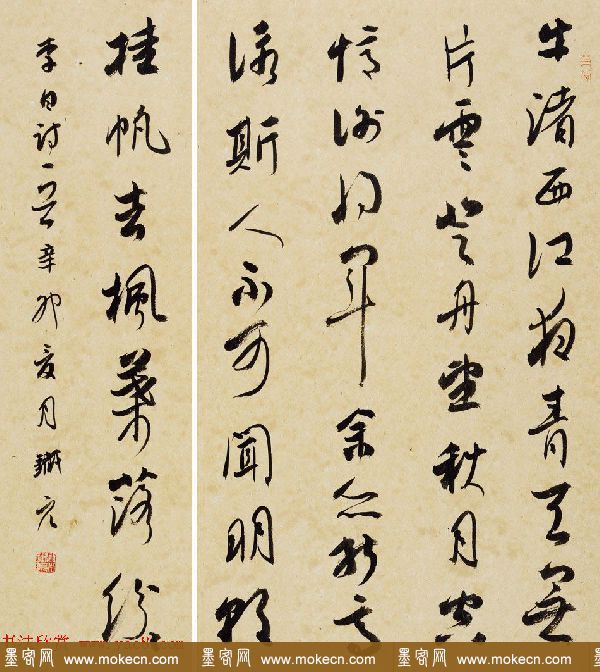 牛渚西江夜青天無
片雲登舟望秋月空
憶謝將軍余亦能高
詠斯人不可聞明朝
挂帆去楓葉落紛
李白詩一首辛卯夏月
墨客网 www.mokecn.com 墨客网 www.mokecn.com 墨客网 www.mokecn.com